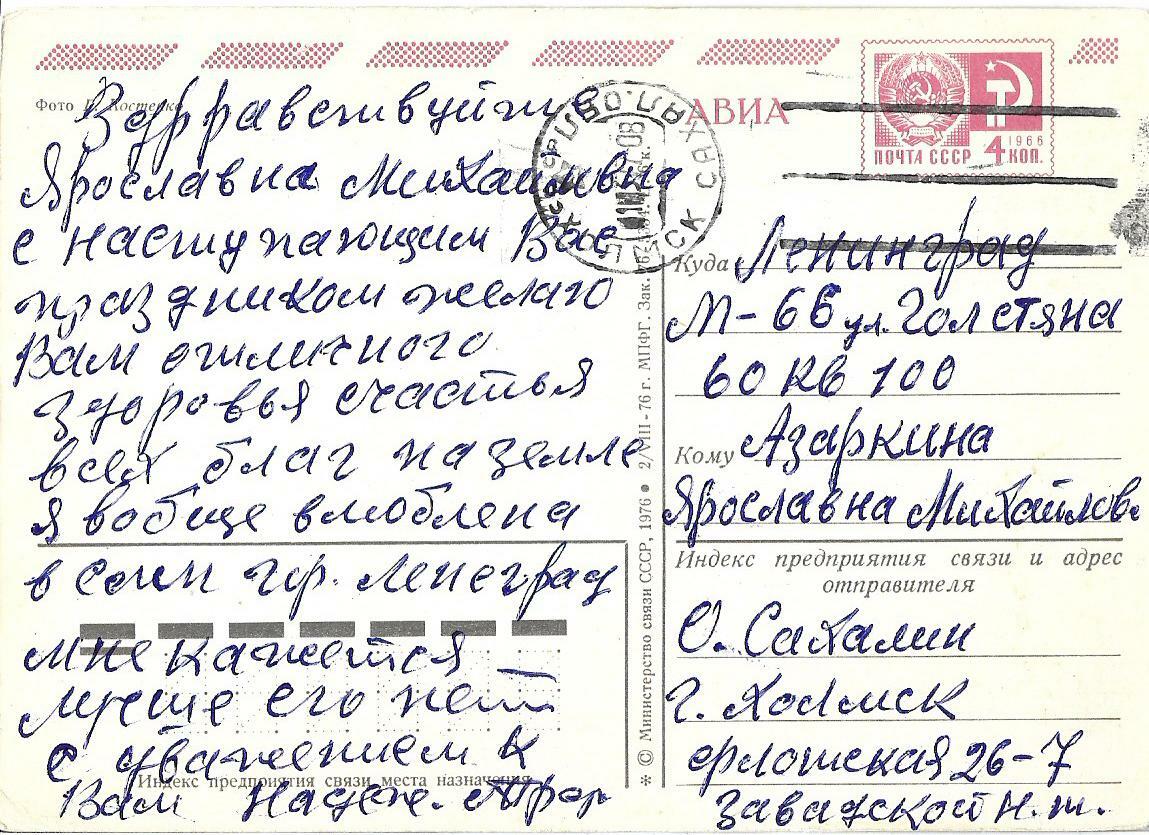 Фото В. Костенко
АВИА
1966
ПОЧТА СССР 4 КОП.
Здравствуйте
Ярославна Михайловна
с наступающим Вас
праздником желаю
Вам отличного
здоровья счастья
всех благ на земле
я вобще влюблена
в гр. Ленеград
мне кажется
лучше его нет
с уважением к
Вам Надеж.
Куда Ленинград
М-66 ул. Голстяна
60 кв 100
Кому Азаркина
Ярославна Михайлов.
Индекс предприятия связи и адрес
отправителя
О. Сахалин
г. Холмск
26-7
Завадской Н.т.
Индекс предприятия связи места назначения
* © Министерство связи СССР, 1976 ● 2/VIII-76 г. МПФГ. Зак. 76